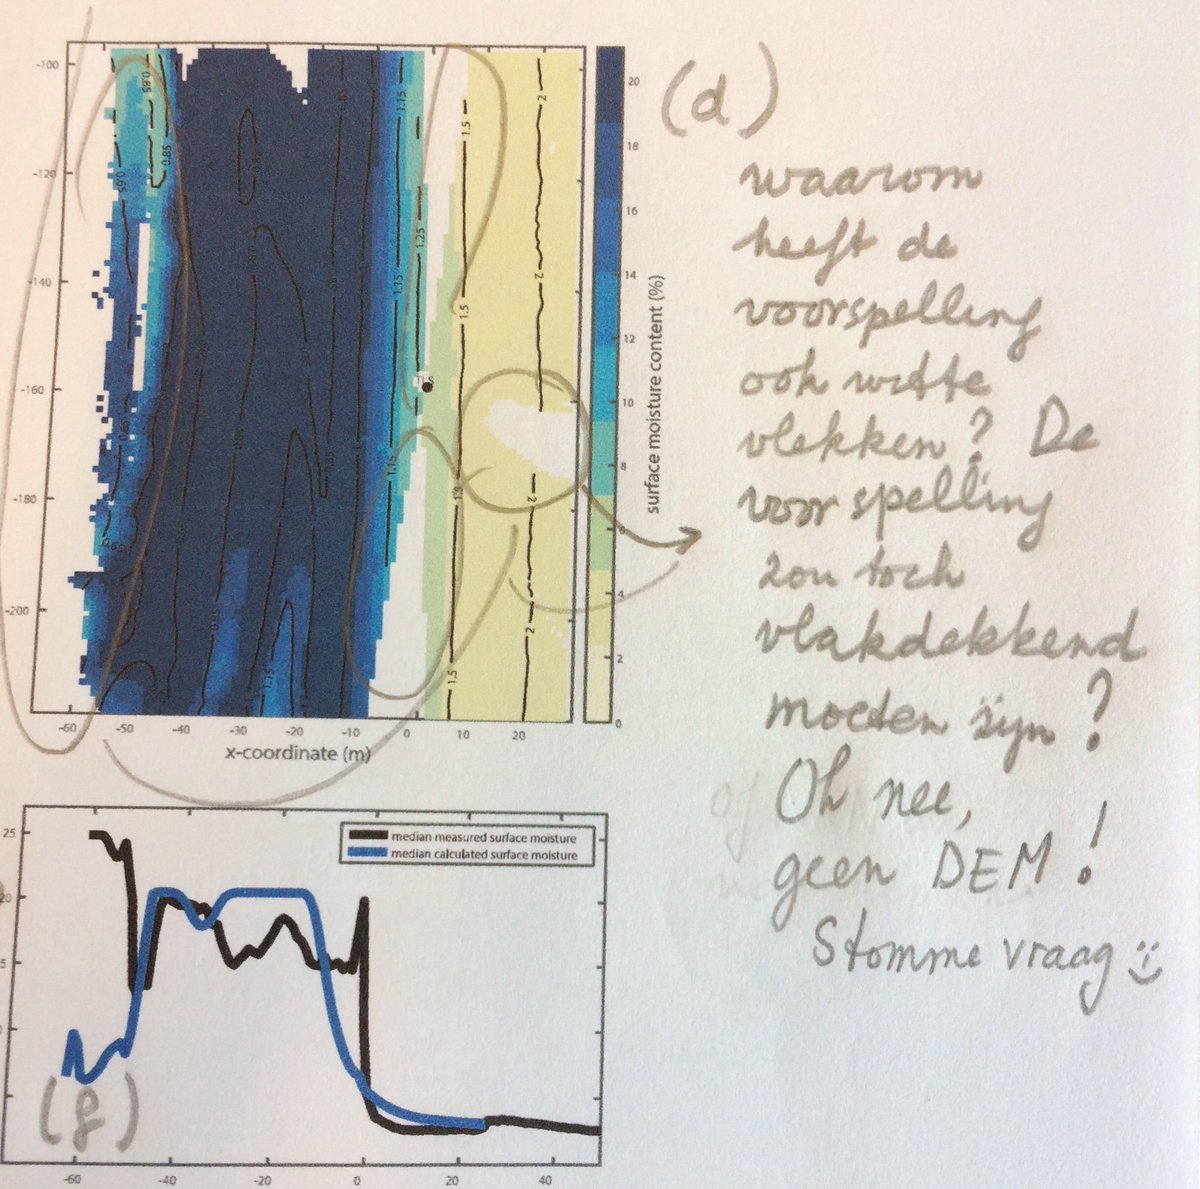 (d)
waarom
heeft de
voorspelling
ook witte
vlekken? De
voorspelling
zou toch
vlakdekkend
moeten zijn?
Oh nee,
geen DEM!
Stomme vraag :)
-100
-120
-140
-160
-180
-200
-60
-50
-40
-30
-20
-10
0
10
20
x-coordinate (m)
0.85
0.85
0.65
0.85
1.15
1.5
2
1.25
1.15
1.5
2
1.15
1.5
2
0.65
1.15
1.5
2
20
18
16
14
12
10
8
6
4
2
0
surface moisture content (%)
median measured surface moisture
median calculated surface moisture
25
20
5
(g)
-60
-40
-20
0
20
40